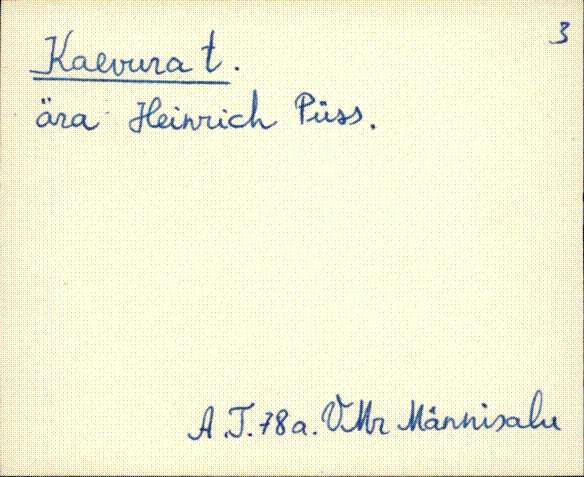 3
Kaevura t.
ära Heinrich Püss.
A.T.78a. VMr Männisalu